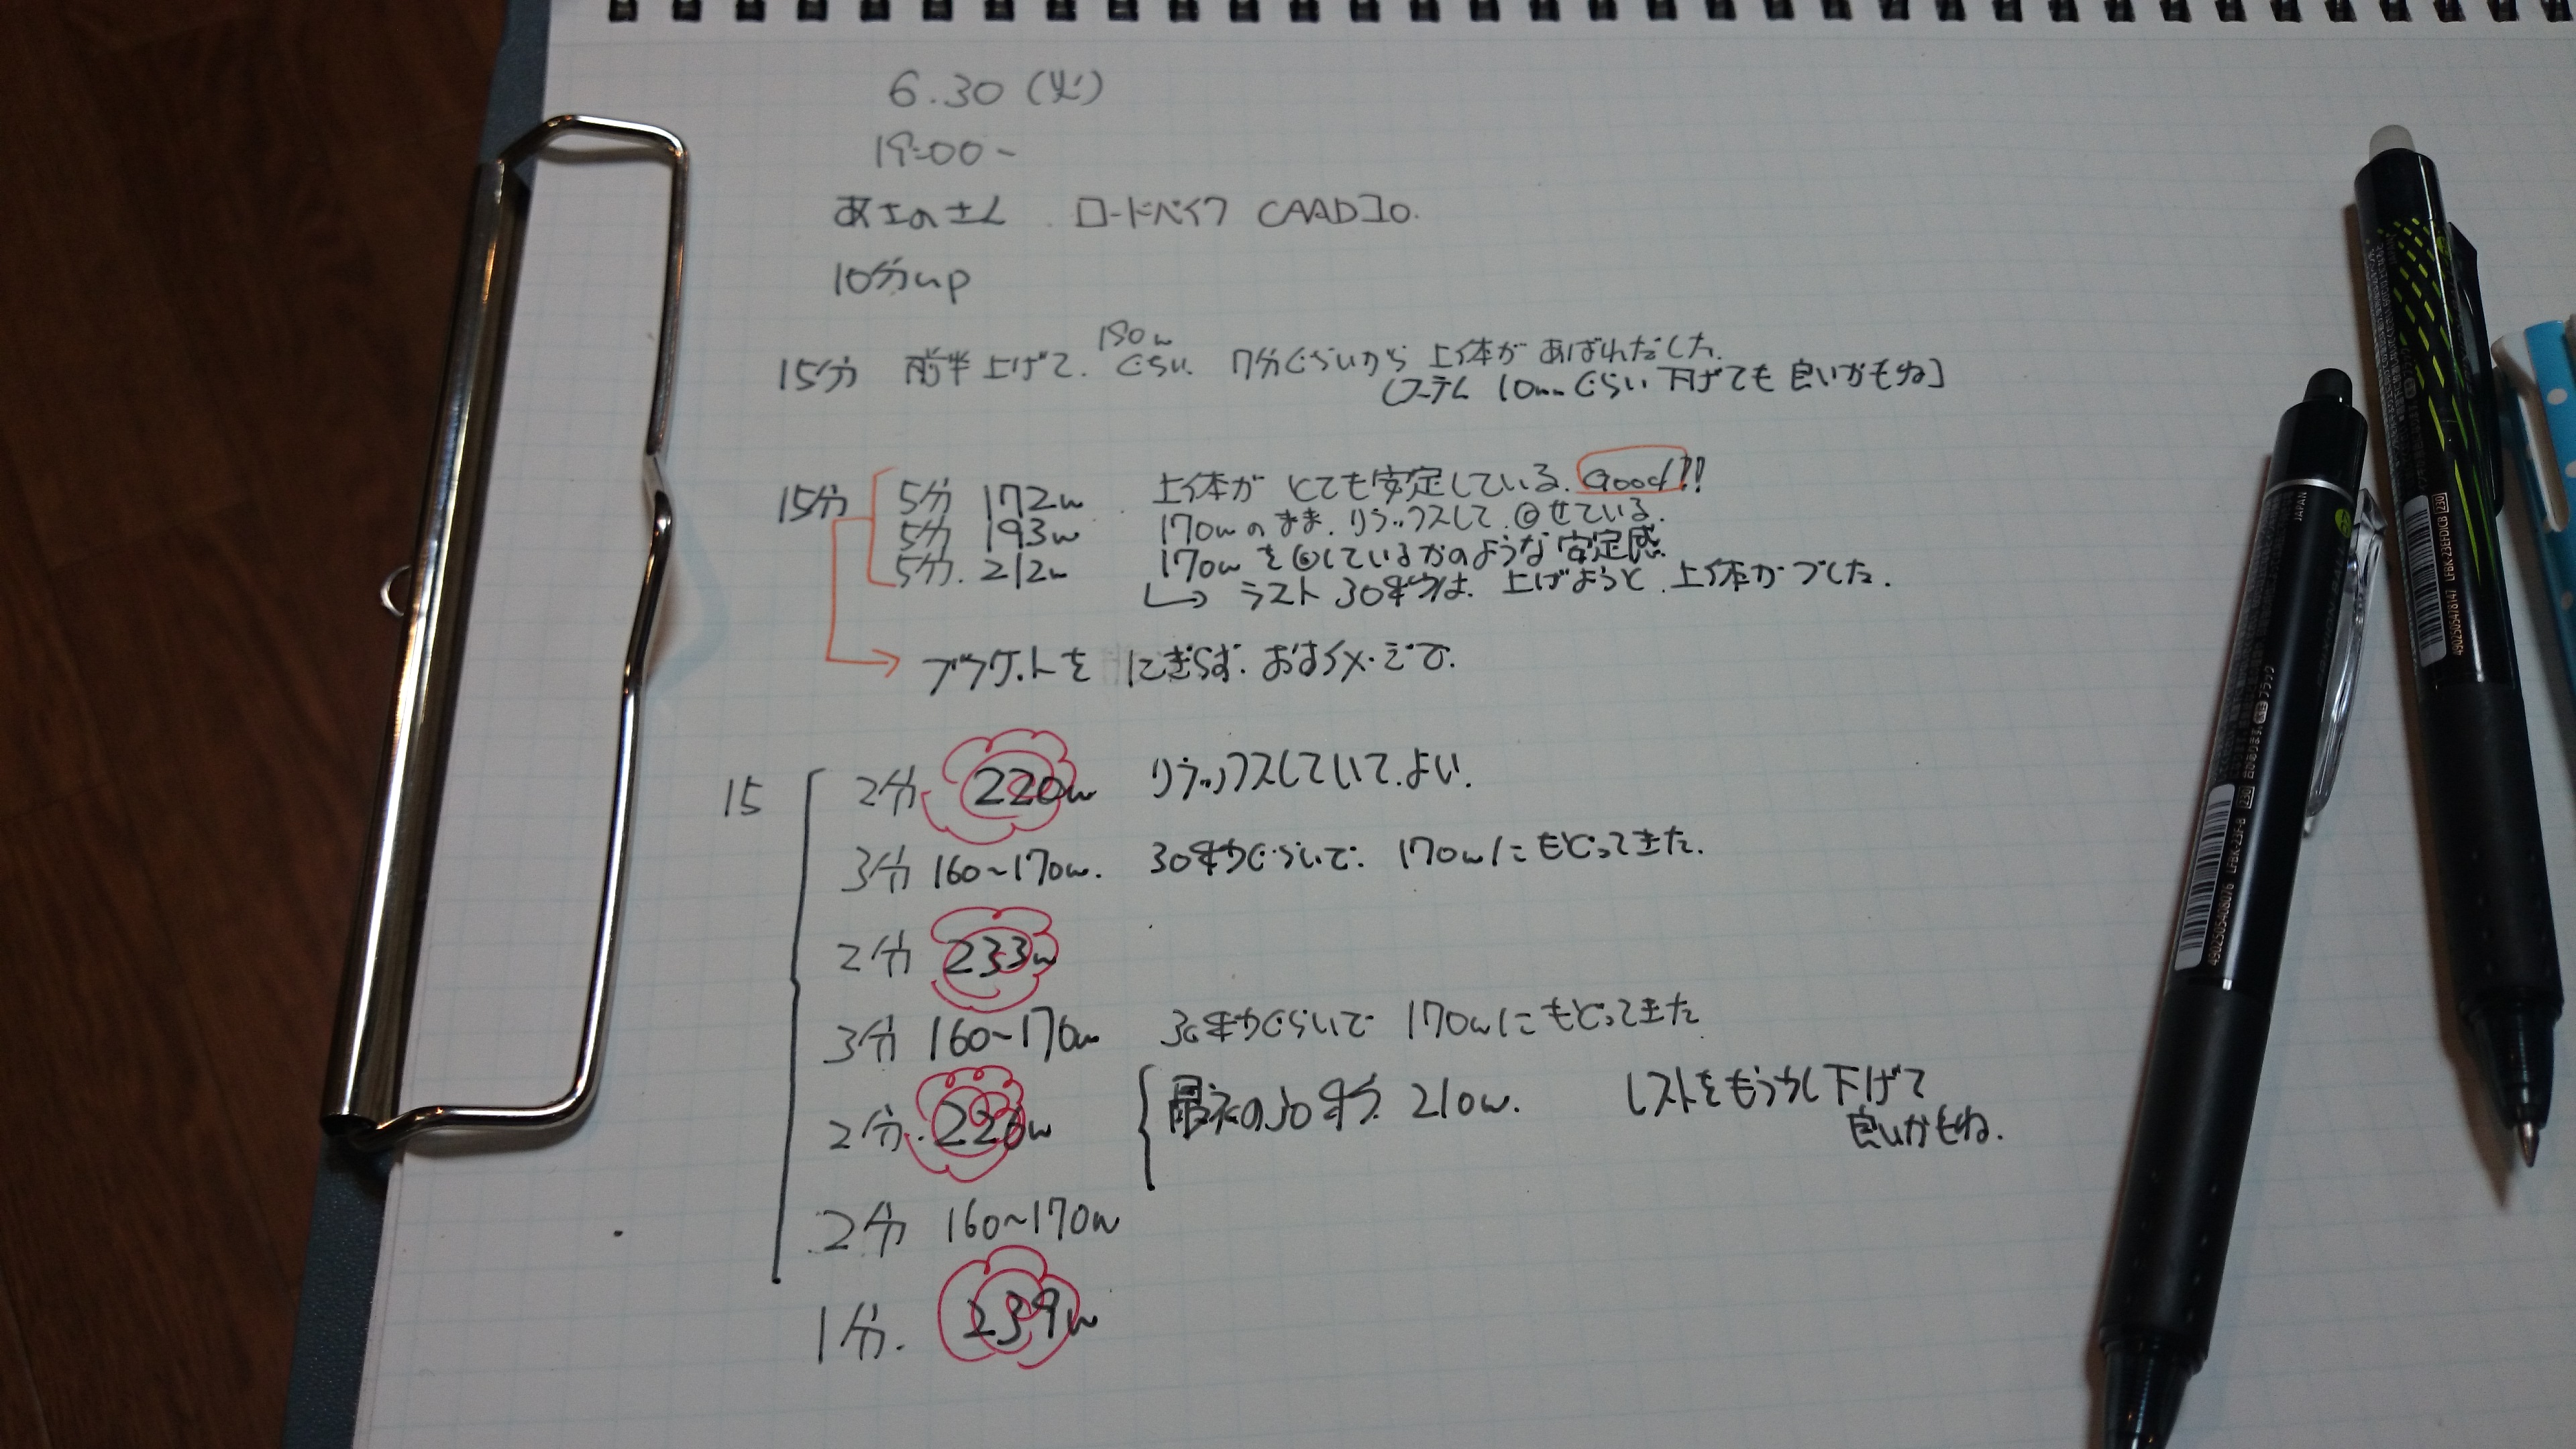 6.30 (火)
19:00~
あさのさん ロードバイク CAAD10.
10分up
15分 前半上げて. 190wぐらい 7分ぐらいから 上体が あばれだした.
[ステム 10mmぐらい 下げても 良いかもね]
15分 5分 172w 上体が とても安定している. Good!!
5分 193w 170wのまま. リラックスして. 回せている.
5分. 212w 170wを回しているかのような安定感.
→ ラスト 30秒は. 上げようと. 上体が
ブラケットを にぎらず. おすイメージで.
15 2分 220w リラックスしていて.よい.
3分 160~170w. 30秒ぐらいで. 170wにもどってきた.
2分 233w
3分 160~170w 30秒ぐらいで 170wにもどってきた
2分. 226w 最初の30秒. 210w. レストをもう少し下げて
良いかもね.
2分 160~170w
1分. 239w
JAPAN
4902505408076 LFBK-23F-B 230
4902505478147 LFBK-23EFDICB 230